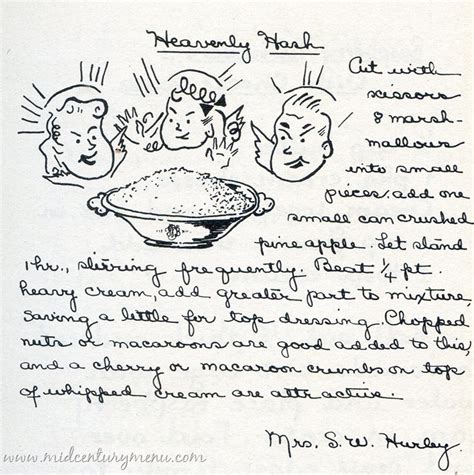 Heavenly Hash
Cut with
scissors
8 marsh-
mallows
into small
pieces, add one
small can crushed
pineapple. Let stand
1 hr., stirring frequently. Beat 1/4 pt.
heavy cream, add greater part to mixture,
saving a little for top dressing. Chopped
nuts or macaroons are good added to this,
and a cherry or macaroon crumbs on top
of whipped cream are attractive.
Mrs. S.W. Hurley
www.midcenturymenu.com